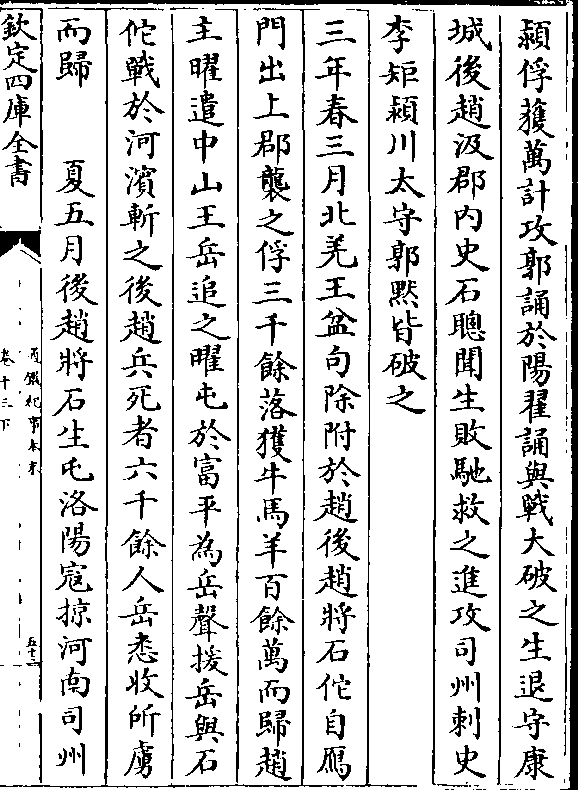 潁俘獲萬計攻郭誦於陽翟誦與戰大破之生退守康
城後趙汲郡内史石聰聞生敗馳救之進攻司州刺史
李矩潁川太守郭黙皆破之
三年春三月北羌王盆句除附於趙後趙將石佗自鴈
門出上郡襲之俘三千餘落獲牛馬羊百餘萬而歸趙
主曜遣中山王岳追之曜屯於富平為岳聲援岳與石
佗戰於河濱斬之後趙兵死者六千餘人岳悉收所虜
而歸　夏五月後趙將石生屯洛陽寇掠河南司州
欽定四庫全書
通鑑紀事本末
卷十三下
五十二